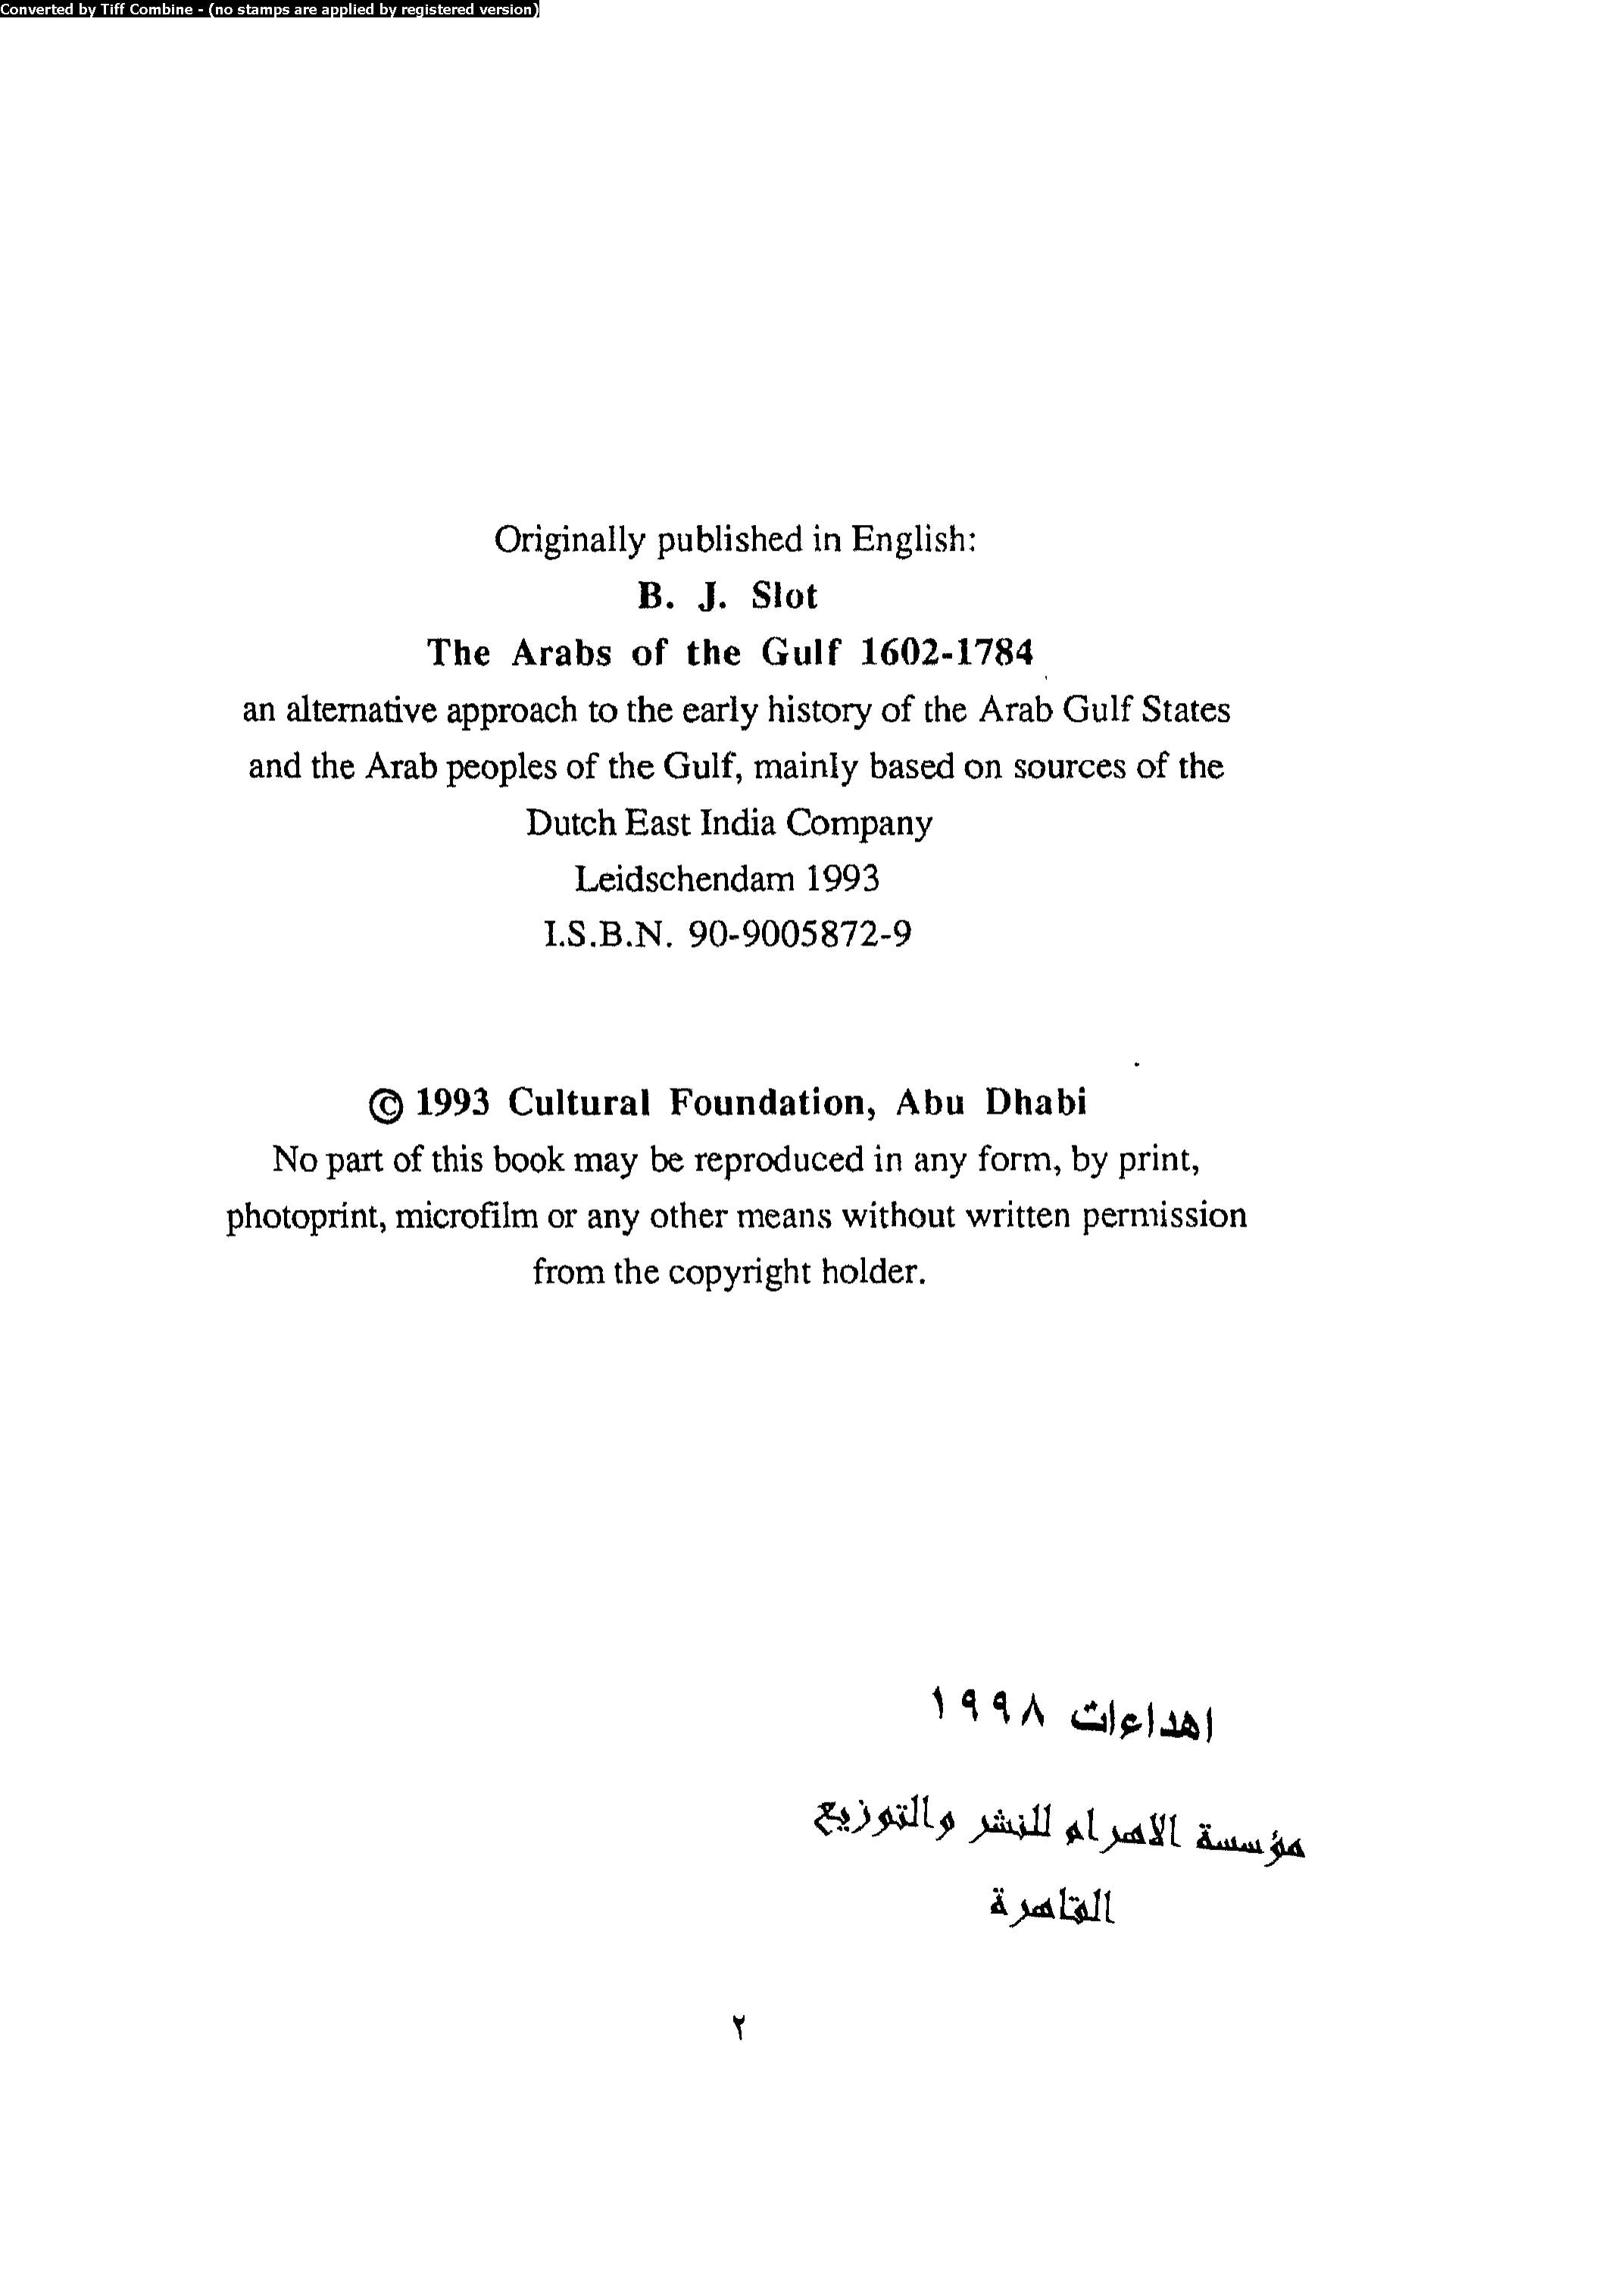 Converted by Tiff Combine - (no stamps are applied by registered version)
Originally published in English:
B. J. Slot
The Arabs of the Gulf 1602-1784
an alternative approach to the early history of the Arab Gulf States
and the Arab peoples of the Gulf, mainly based on sources of the
Dutch East India Company
Leidschendam 1993
I.S.B.N. 90-9005872-9
© 1993 Cultural Foundation, Abu Dhabi
No part of this book may be reproduced in any form, by print,
photoprint, microfilm or any other means without written permission
from the copyright holder.
اهداءات ١٩٩٨
مؤسسة الاهرام للنشر والتوزيع
القاهرة
٢